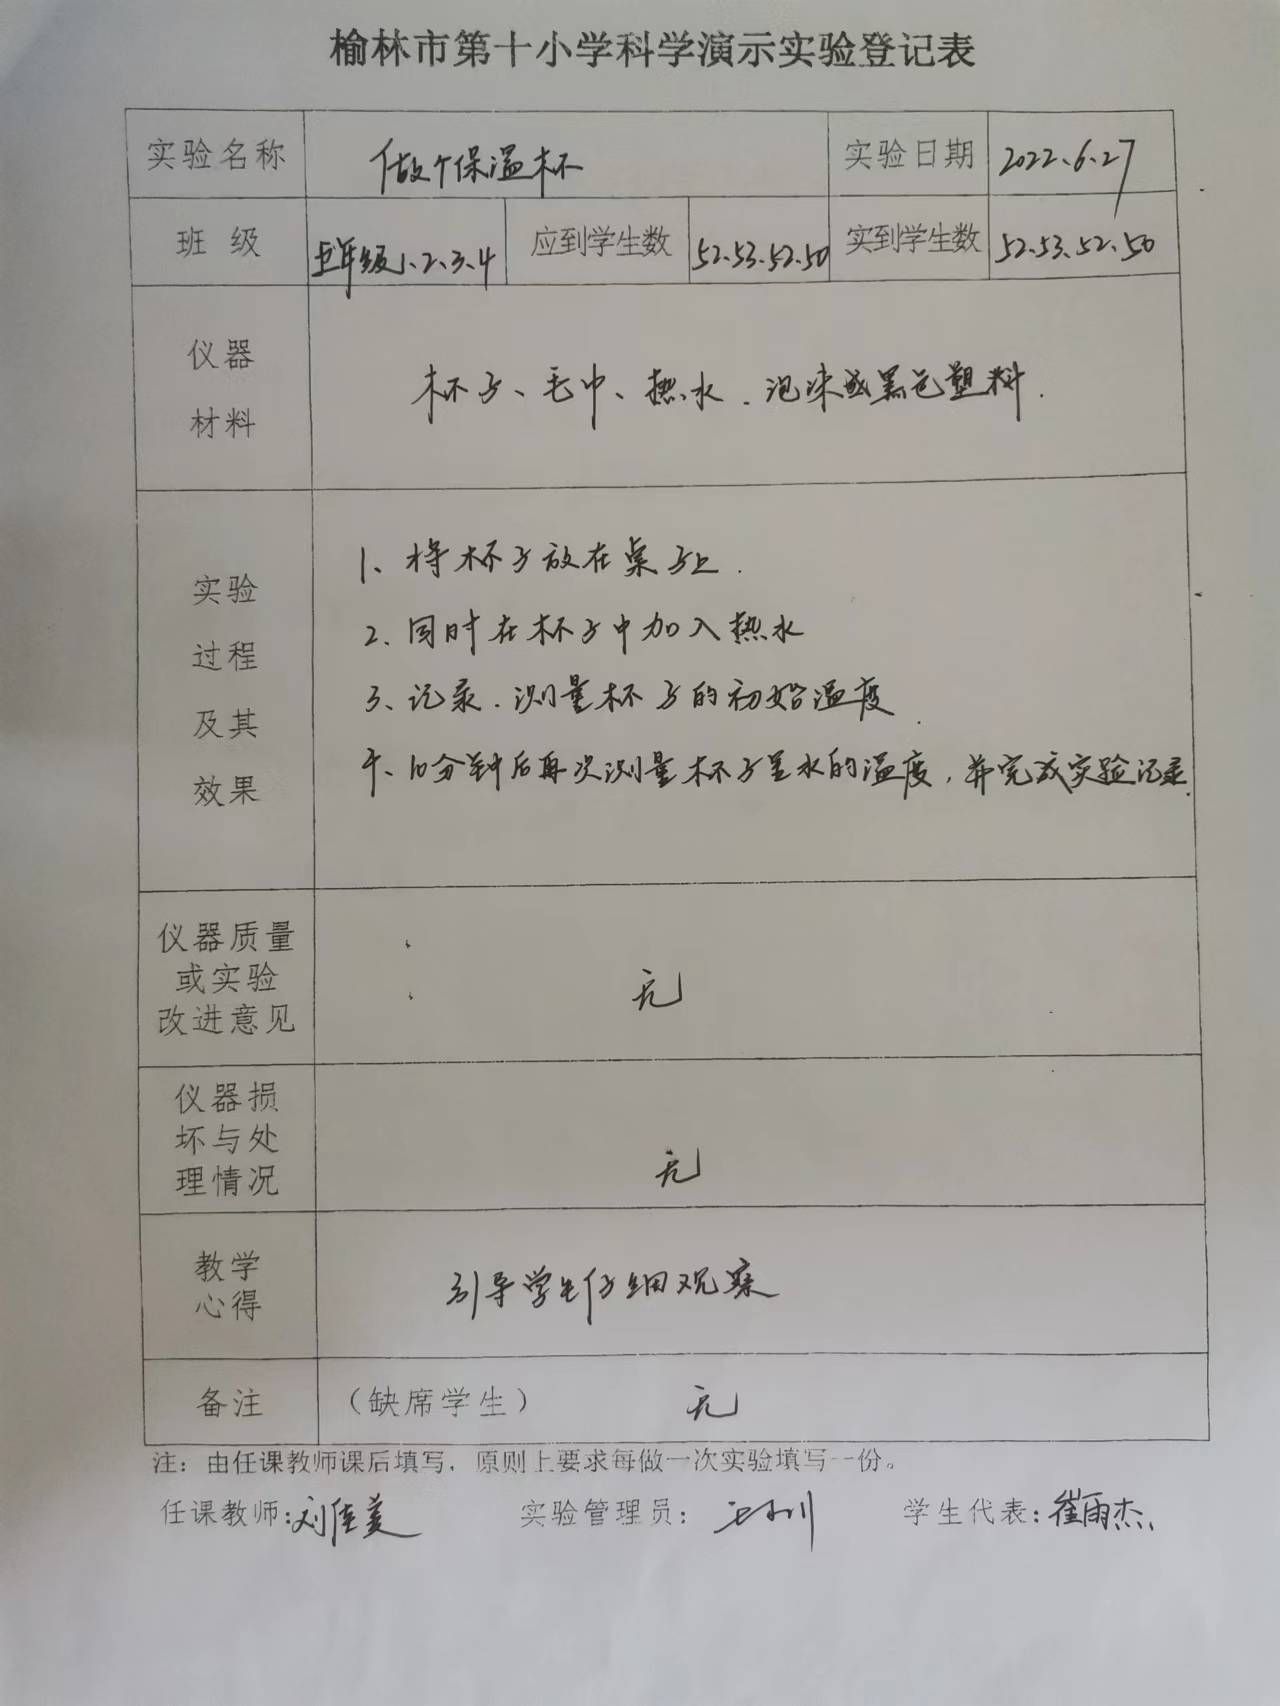 榆林市第十小学科学演示实验登记表
实验名称 做个保温杯 实验日期 2022.6.27
班 级 五年级1、2、3、4 应到学生数 52、53、52、50 实到学生数 52、53、52、50
仪器
材料
杯子、毛巾、热水、泡沫或黑色塑料.
实验
过程
及其
效果
1、将杯子放在桌子上.
2、同时在杯子中加入热水
3、记录、测量杯子的初始温度.
4、10分钟后再次测量杯子里水的温度,并完成实验记录.
仪器质量
或实验
改进意见
无
仪器损
坏与处
理情况
无
教学
心得
引导学生仔细观察
备注 （缺席学生） 无
注：由任课教师课后填写，原则上要求每做一次实验填写一份。
任课教师：刘佳美 实验管理员： 学生代表：崔雨杰